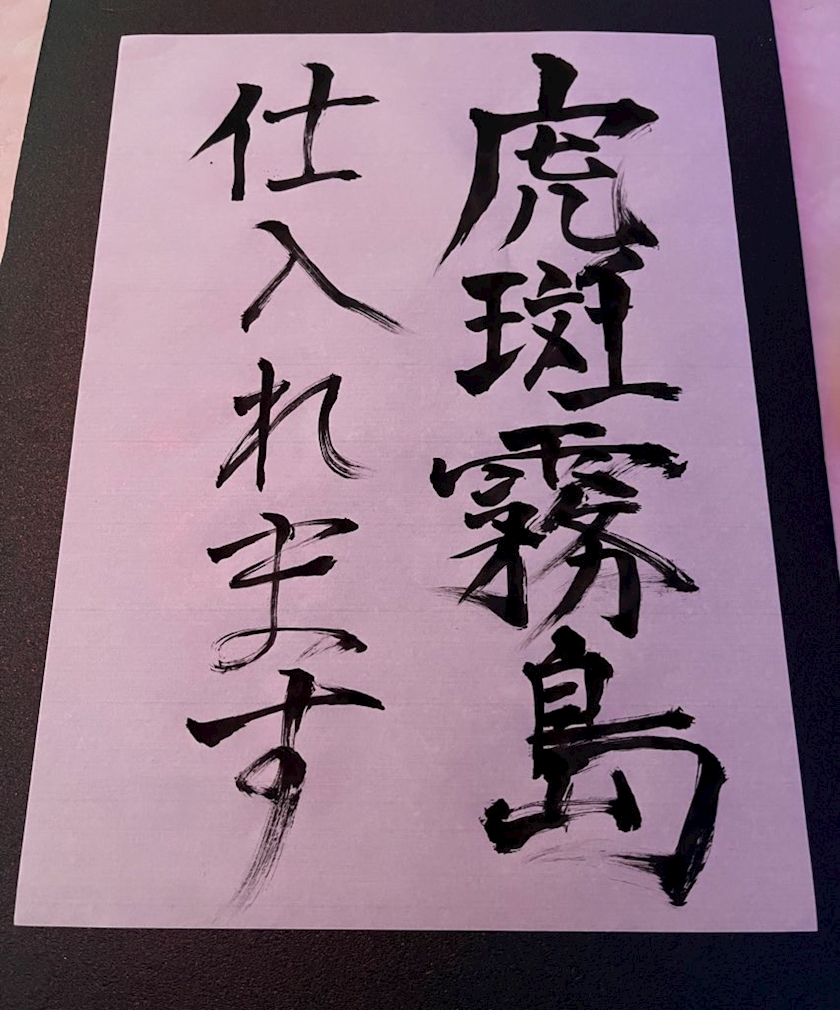 虎斑霧島
仕入れます